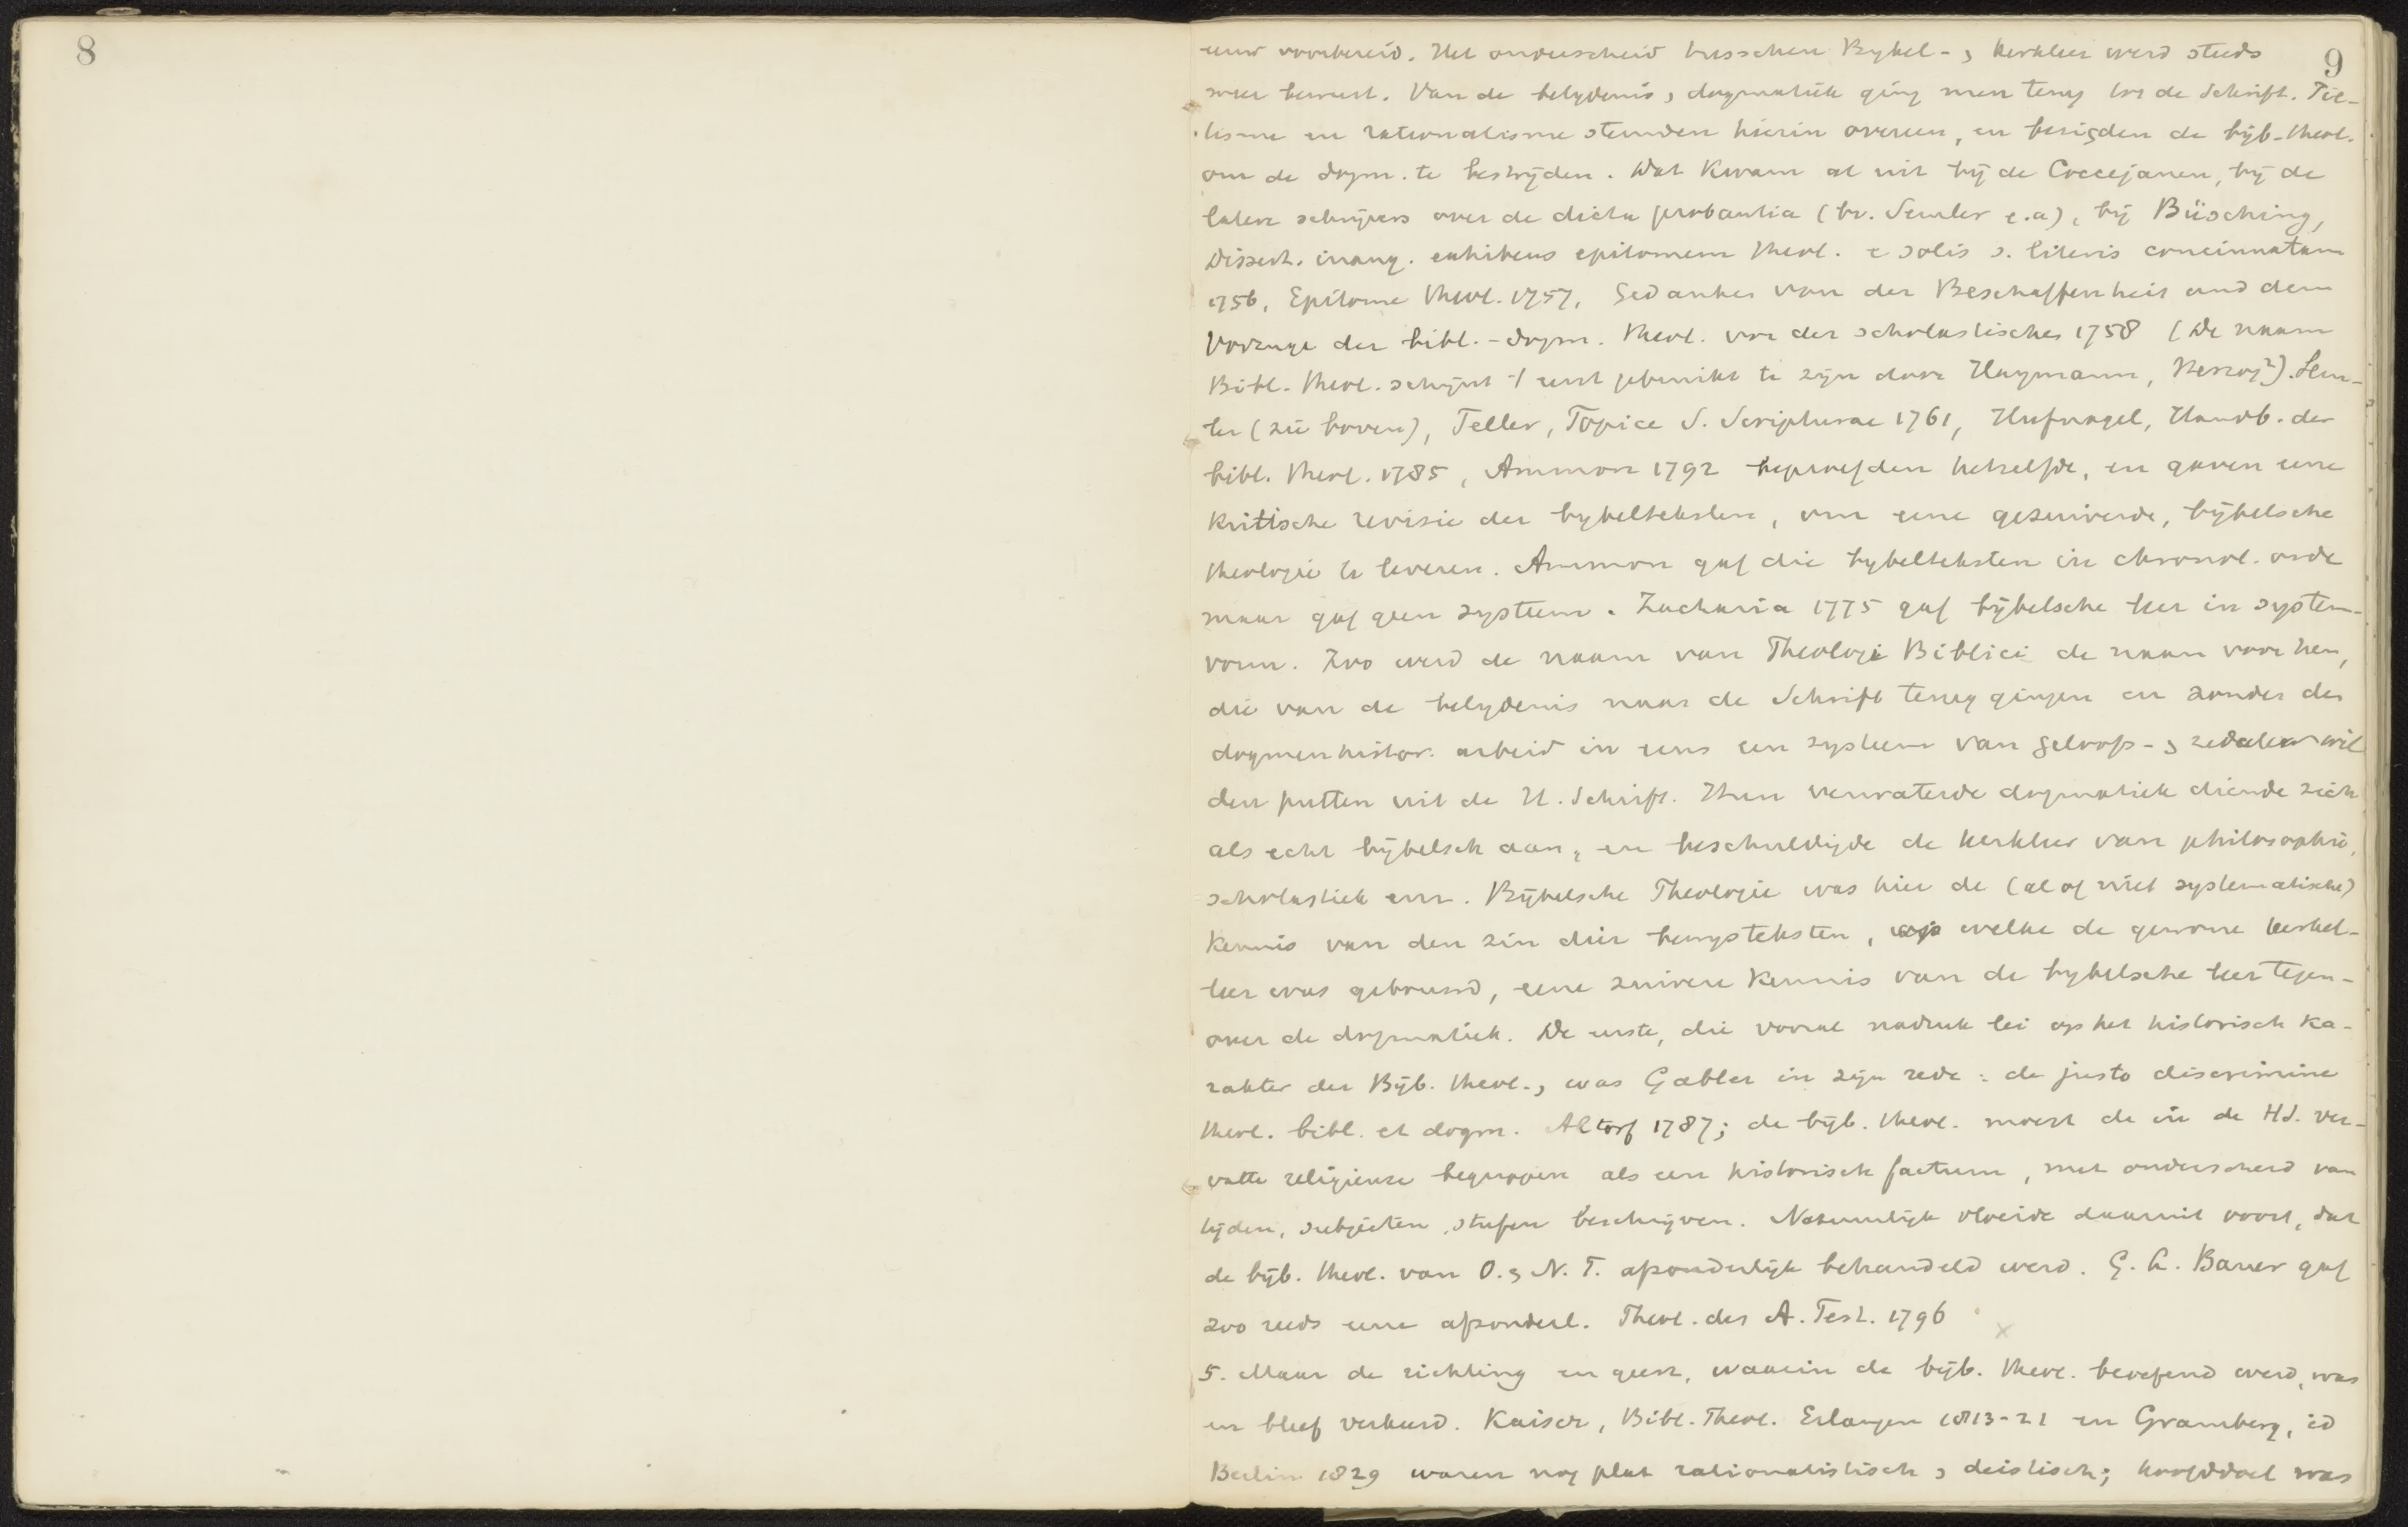 8
9
eeuw voorbereid. Het onderscheid tusschen Bybel- & kerkleer werd steeds
meer bewust. Van de belydenis & dogmatiek ging men terug tot de Schrift. Pie-
tisme en rationalisme stemden hierin overeen, en bezigden de bijb. theol.
om de dogm. te bestrijden. Dat kwam al uit bij de Coccejanen, bij de
latere schrijvers over de dicta probantia (bv. Semler e.a), bij Büsching,
Dissert. inaug. exhibens epitomem theol. e solis s. literis concinnatam
1756, Epitome theol. 1757, Gedanken von der Beschaffenheit und dem
Vorzuge der bibl.-dogm. theol. vor der scholastischen 1758 (De naam
Bibl. theol. schijnt 't eerst gebruikt te zijn door Haymann, Herzog²). Sem-
ler (zie boven), Teller, Topice S. Scripturae 1761, Hufnagel, Handb. der
bibl. theol. 1785, Ammon 1792 beproefden hetzelfde, en gaven eene
kritische revisie der bybelteksten, om eene gezuiverde, bijbelsche
theologie te leveren. Ammon gaf die bybelteksten in chronol. orde
maar gaf geen systeem. Zacharia 1775 gaf bijbelsche leer in system-
vorm. Zoo werd de naam van Theologi Biblici de naam voor hen,
die van de belydenis naar de Schrift terug gingen en zonder den
dogmenhistor. arbeid in eens een systeem van geloofs- & zedeleer wil
den putten uit de H. Schrift. Hun verwaterde dogmatiek diende zich
als echt bijbelsch aan, en beschuldigde de kerkleer van philosophie,
scholastiek enz. Bijbelsche Theologie was hier de (al of niet systematische)
kennis van den zin dier bewysteksten, op welke de gewone kerkel-
leer was gebouwd, eene zuivere kennis van de bybelsche leer tegen-
over de dogmatiek. De eerste, die vooral nadruk lei op het historisch ka-
rakter der Bijb. theol., was Gabler in zijn rede: de justo discrimine
theol. bibl. et dogm. Altorf 1787; de bijb. theol. moest de in de HS. ver-
vatte religieuze begrippen als een historisch factum, met onderscheid van
tijden, subjecten, stufen beschrijven. Natuurlijk vloeide daaruit voort, dat
de bijb. theol. van O. & N. T. afzonderlijk behandeld werd. G. L. Bauer gaf
zoo reeds eene afzonderl. Theol. des A. Test. 1796
5. Maar de richting en geest, waarin de bijb. theol. beoefend werd, was
en bleef verkeerd. Kaiser, Bibl. Theol. Erlangen 1813-21 en Gramberg, id
Berlin 1829 waren nog plat rationalistisch & deistisch; hoofddoel was